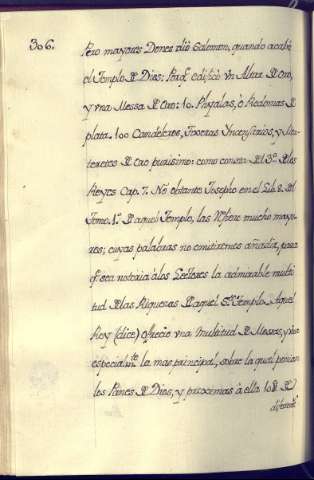 306.
Pero mayores Dones dió Salomon, quando acabó
el Templo D Dios; Porq̃ edificó vn Altar D Oro,
y vna Messa D Oro: 10. Phyalas, ò Redomas D
plata. 100 Candeleros, Tixeras Yncensarios, y
D Oro purissimo: como consta D el 3º D los
Reyes Cap. 7. No obstante Josepho en el Lib. 8. D el
Tomo. 1º D aquel Templo, las refiere mucho mayo-
res; cuyas palabras no omitiremos añadir, para
q̃ sea notoria à los Lectores la admirable multi
tud D las Riquezas D aquel Stº Templo. Aquel
Rey (dice) ofrecio vna Multitud D Messas, y vna
especialmte la mas principal, sobre la qual ponian
los Panes D Dios, y proximas à ella 108 D
diferentˢ